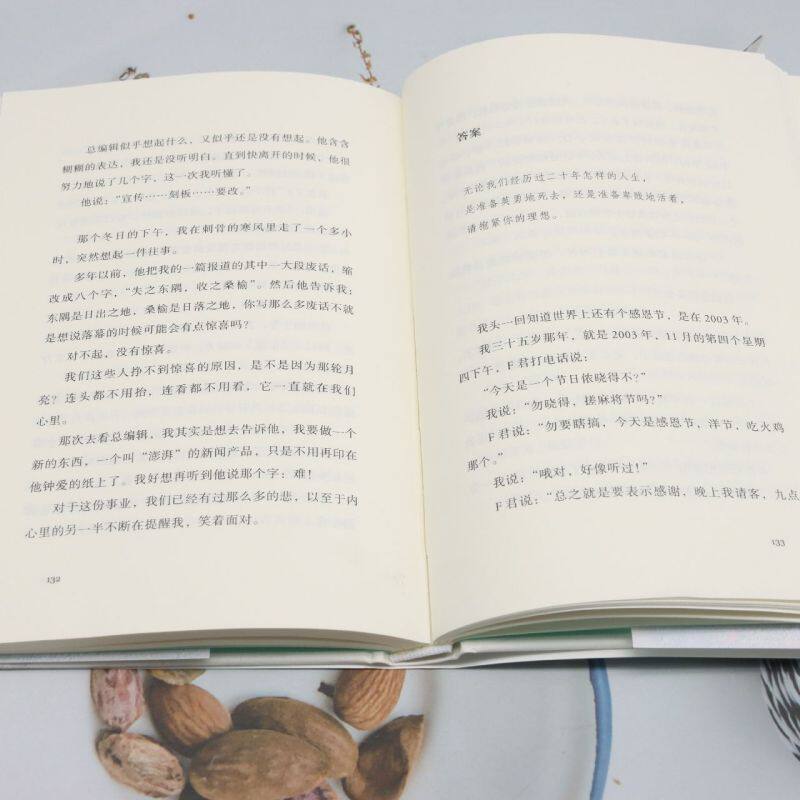 总编辑似乎想起什么，又似乎还是没有想起。他含含
糊糊的表达，我还是没听明白。直到快离开的时候，他很
努力地说了几个字，这一次我听懂了。
他说：“宣传……刻板……要改。”
那个冬日的下午，我在刺骨的寒风里走了一个多小
时，突然想起一件往事。
多年以前，他把我的一篇报道的其中一大段废话，缩
改成八个字，“失之东隅，收之桑榆”。然后他告诉我：
东隅是日出之地，桑榆是日落之地，你写那么多废话不就
是想说落幕的时候可能会有点惊喜吗？
对不起，没有惊喜。
我们这些人挣不到惊喜的原因，是不是因为那轮月
亮？连头都不用抬，连看都不用看，它一直就在我们
心里。
那次去看总编辑，我其实是想去告诉他，我要做一个
新的东西，一个叫“澎湃”的新闻产品，只是不用再印在
他钟爱的纸上了。我好想再听到他说那个字：难！
对于这份事业，我们已经有过那么多的悲，以至于内
心里的另一半不断在提醒我，笑着面对。
132
答案
无论我们经历过二十年怎样的人生，
是准备英勇地死去，还是准备卑贱地活着，
请抱紧你的理想。
我头一回知道世界上还有个感恩节，是在 2003 年。
我三十五岁那年，就是 2003 年，11 月的第四个星期
四下午，F 君打电话说：
“今天是一个节日侬晓得不？”
我说：“勿晓得，搓麻将节吗？”
F 君说：“勿要瞎搞，今天是感恩节，洋节，吃火鸡
那个。”
我说：“哦对，好像听过！”
F 君说：“总之就是要表示感谢，晚上我请客，九点
133